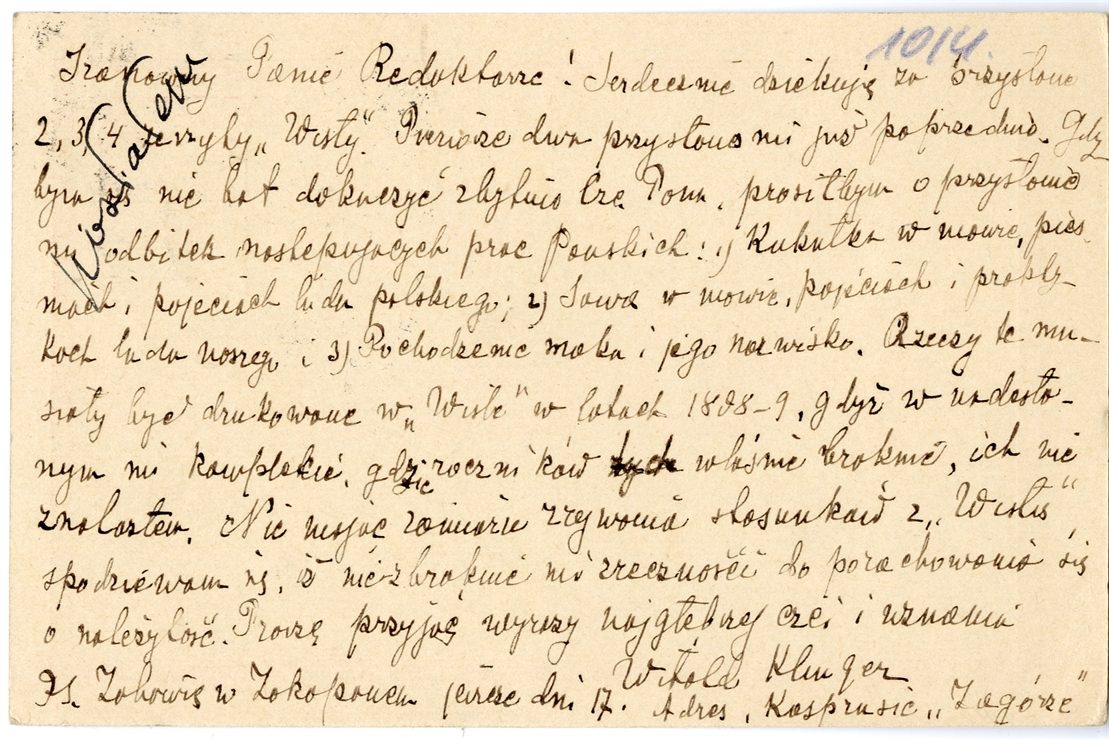 1014.
Szanowny Panie Redaktorze! Serdecznie dziękuję za przysłane
2, 3, 4 zeszyty „Wisły”. Pierwsze dwa przysłano mi już poprzednio. Gdy-
bym się nie bał dokuczyć zbytnio Cz. Panu, prosiłbym o przysłanie
mi odbitek następujących prac Pańskich: 1) Kukułka w mowie, pieś-
niach i pojęciach ludu polskiego; 2) Sowa w mowie, pojęciach i prakty-
kach ludu naszego i 3) Pochodzenie maku i jego nazwisko. Rzeczy te mu-
siały być drukowane w „Wiśle” w latach 1888-9, gdyż w nadesła-
nym mi komplekcie, gdzie roczników tych właśnie braknie, ich nie
znalazłem. Nie mając zamiaru zrywania stosunków z „Wisłą”
spodziewam się, iż nie zbraknie mi zręczności do porachowania się
o należytość. Proszę przyjąć wyrazy najgłębszej czci i uznania
Witold Klinger
PS. Zabawię w Zakopanem jeszcze dni 17. Adres, Kasprusie „Zagórze”